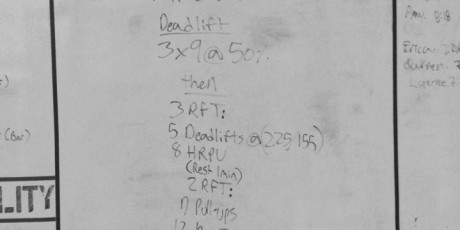 Deadlift
3x9@50%
then
3 RFT:
5 Deadlifts @(225,155)
8 HRPU
(Rest 1min)
2 RFT:
Pull-ups
8:18
(Bar)
LITY